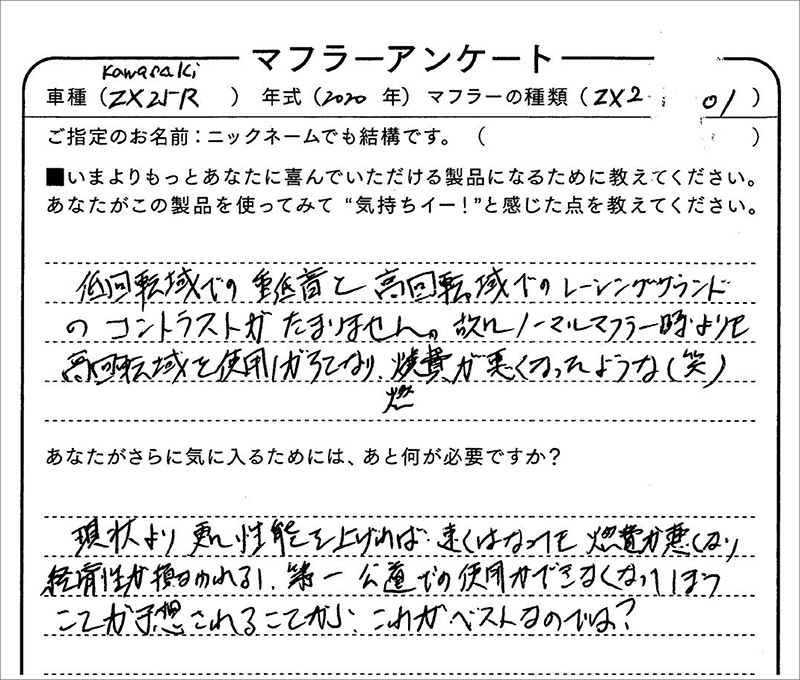 マフラーアンケート
Kawasaki
車種（ZX25R　）年式（2020 年）マフラーの種類（ZX2　01）
ご指定のお名前：ニックネームでも結構です。（　）
■いまよりもっとあなたに喜んでいただける製品になるために教えてください。
あなたがこの製品を使ってみて“気持ちイー！”と感じた点を教えてください。
低回転域での重低音と高回転域でのレーシングサウンド
のコントラストがたまりません。故にノーマルマフラー時よりも
高回転域を使用しがちになり、燃費が悪くなったような（笑）
燃
あなたがさらに気に入るためには、あと何が必要ですか？
現状より更に性能を上げれば速くはなっても燃費が悪くなり
経済性が損なわれるし、第一公道での使用ができなくなってしまう
ことが予想されることから、これがベストなのでは？